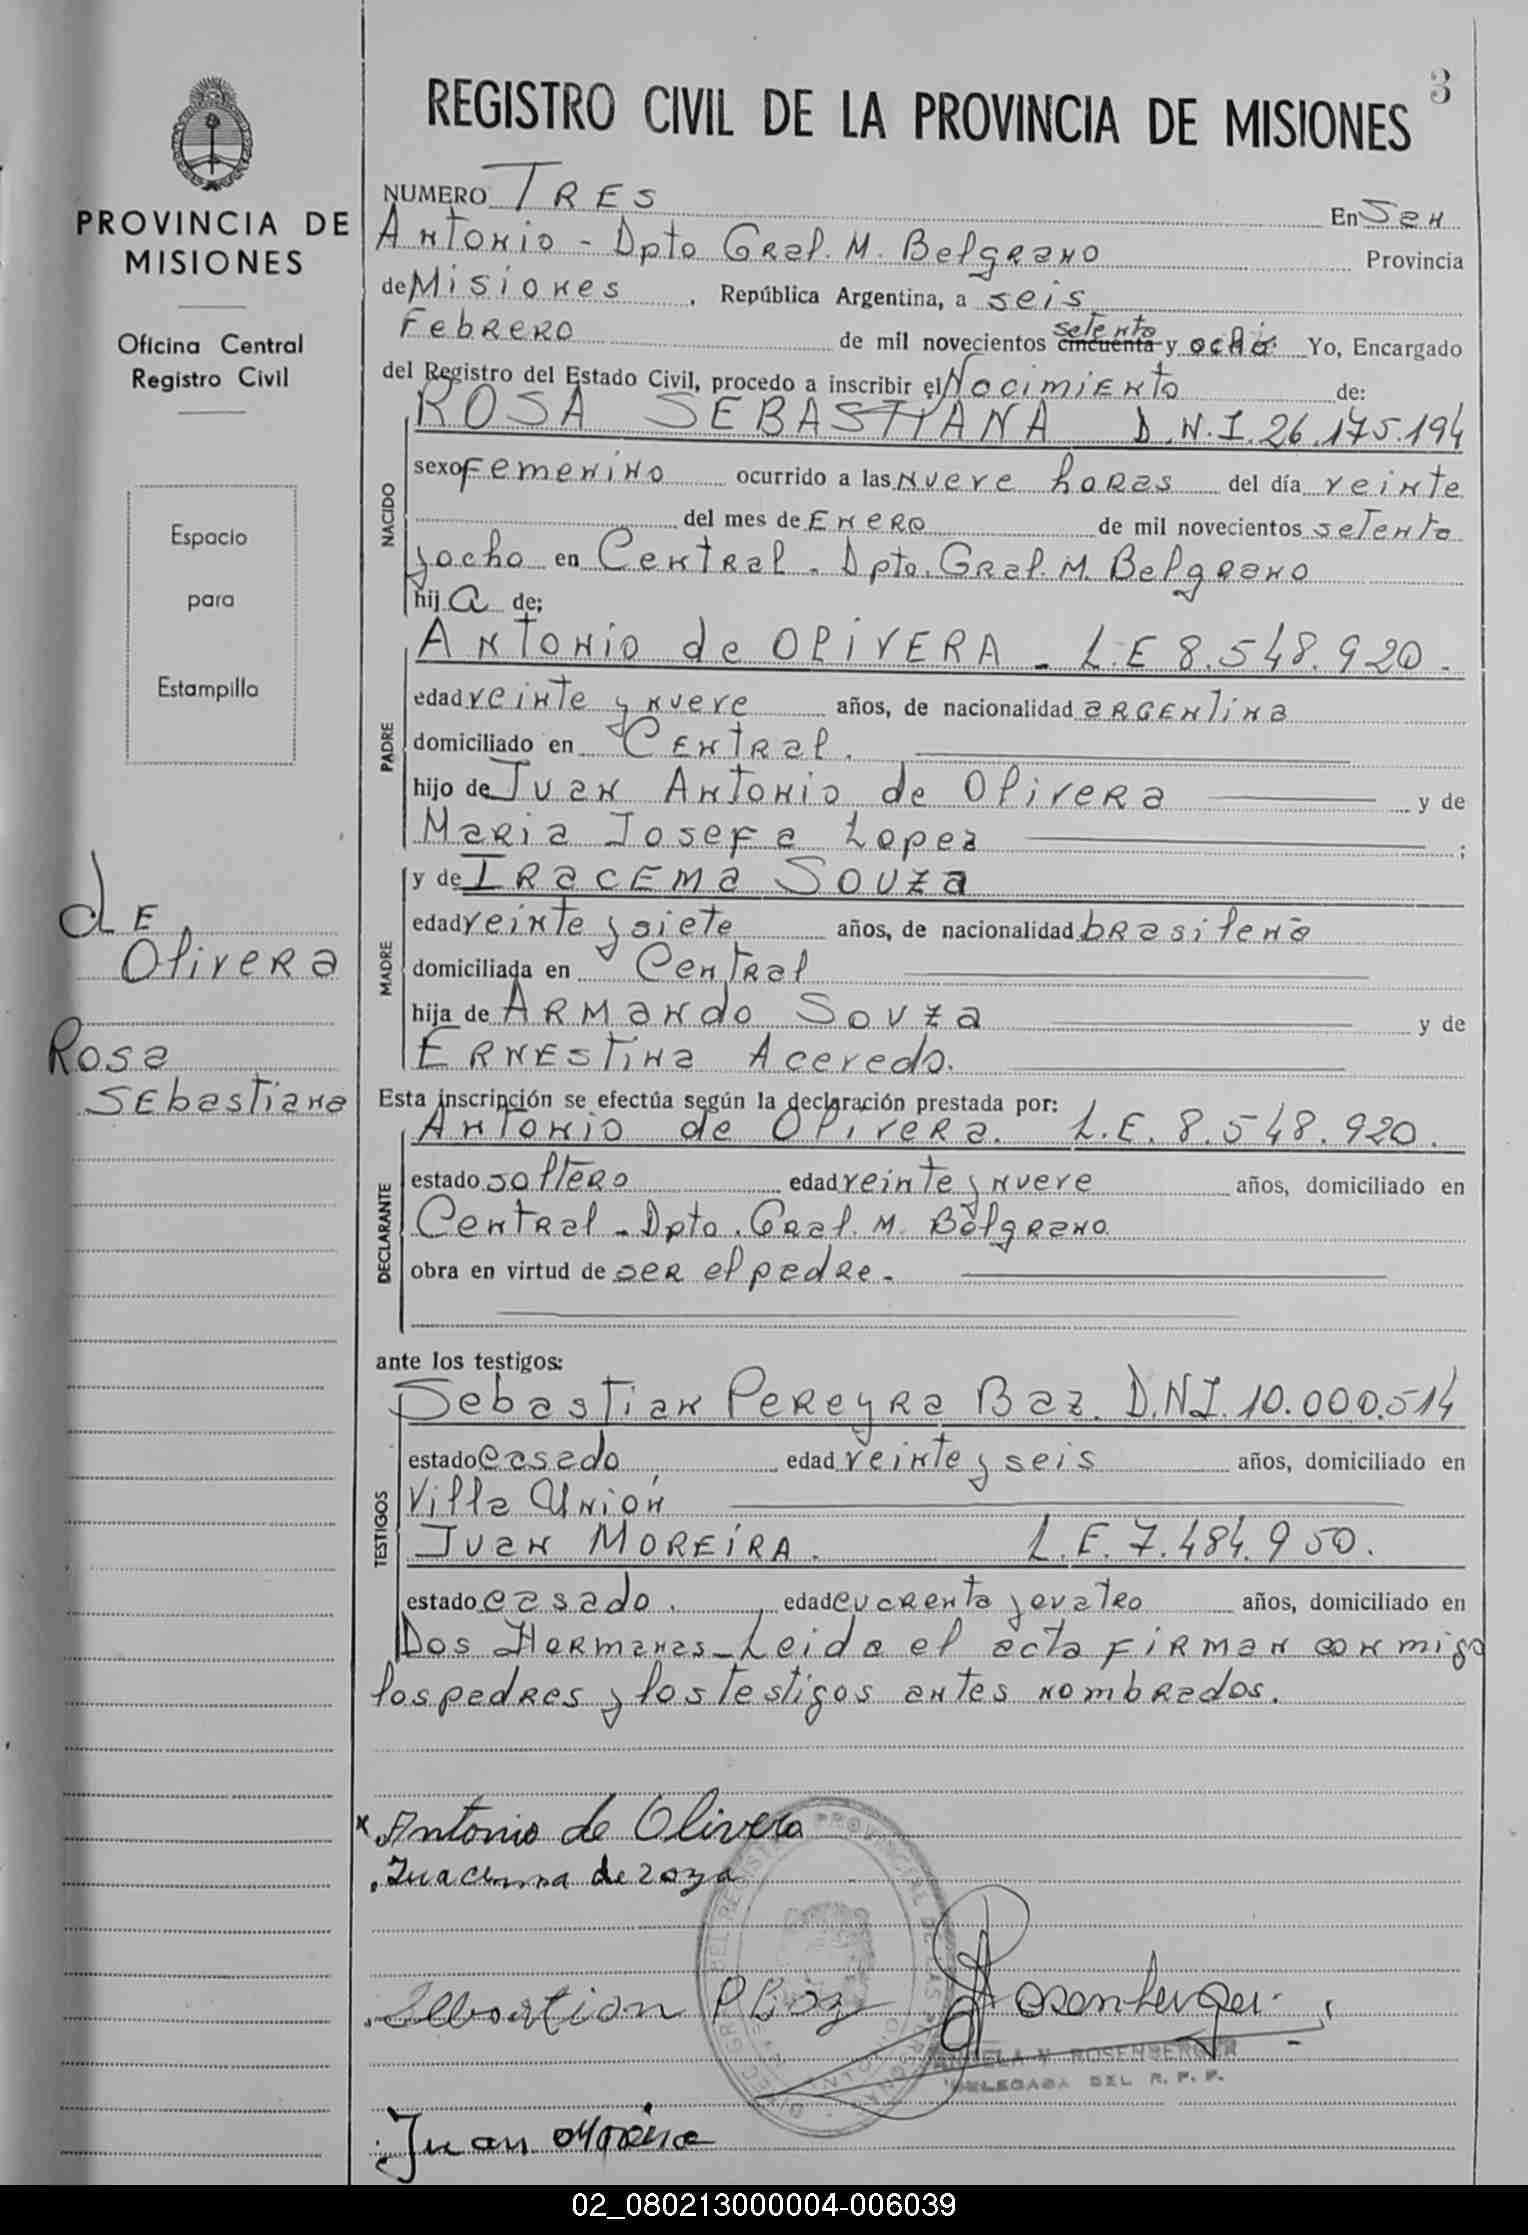 3
REGISTRO CIVIL DE LA PROVINCIA DE MISIONES
PROVINCIA DE
MISIONES
Oficina Central
Registro Civil
Espacio
para
Estampilla
de
Olivera
Rosa
Sebastiana
NUMERO TRES En San
Antonio - Dpto Gral. M. Belgrano Provincia
de Misiones, República Argentina, a seis
Febrero de mil novecientos cincuenta setenta y ocho Yo, Encargado
del Registro del Estado Civil, procedo a inscribir el Nacimiento de:
NACIDO
ROSA SEBASTIANA D.N.I. 26.175.194
sexo Femenino ocurrido a las nueve horas del día veinte
del mes de Enero de mil novecientos setenta
y ocho en Central - Dpto. Gral. M. Belgrano
hija de;
PADRE
Antonio de OLIVERA - L.E 8.548.920.
edad veinte y nueve años, de nacionalidad argentina
domiciliado en Central.
hijo de Juan Antonio de Olivera y de
Maria Josefa Lopez ;
MADRE
y de Iracema Souza
edad veinte y siete años, de nacionalidad brasileña
domiciliada en Central
hija de Armando Souza y de
Ernestina Acevedo.
Esta inscripción se efectúa según la declaración prestada por:
DECLARANTE
Antonio de Olivera. L.E. 8.548.920.
estado soltero edad veinte y nueve años, domiciliado en
Central - Dpto. Gral. M. Belgrano
obra en virtud de ser el padre.
ante los testigos:
TESTIGOS
Sebastian Pereyra Baz. D.N.I. 10.000.514
estado casado edad veinte y seis años, domiciliado en
Villa Unión
Juan Moreira. L.E. 7.484.950.
estado casado. edad cuarenta y cuatro años, domiciliado en
Dos Hermanas - Leida el acta firman conmigo
los padres y los testigos antes nombrados.
x Antonio de Olivera
Sebastian P Baz
Rosenberger
ANGELA V. ROSENBERGER
DELEGADA DEL R. P. P.
Juan Moreira
02_080213000004-006039